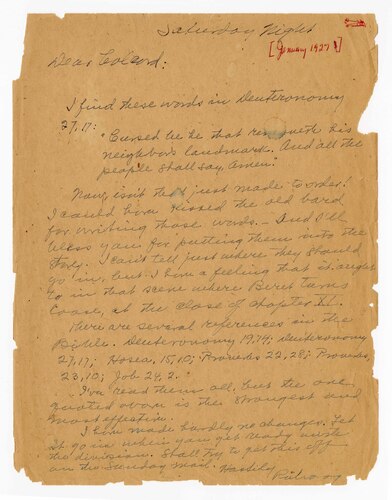 Saturday Night
[January 1927?]
Dear Colcord:
I find these words in Deuteronomy
27,17:
"Cursed be he that removeth his
neighbor's landmark. And all the
people shall say, Amen."
Now, isn't that just made to order!
I could have kissed the old bard
for writing those words. — And I'll
bless you for putting them into the
story. I can't tell just where they should
go in, but I have a feeling that it ought
to in that scene where Beret turns
at the close of Chapter II.
There are several references in the
Bible. Deuteronomy 19,14; Deuteronomy
27,17; Hosea, 5,10; Proverbs 22,28; Proverbs,
23,10; Job 24,2.
I've read them all, but the one
quoted above is the strongest and
most effective.
I have made hardly no changes. Let
it go in when you get ready with
the division. Shall try to get this off
on the Sunday mail. Hastily